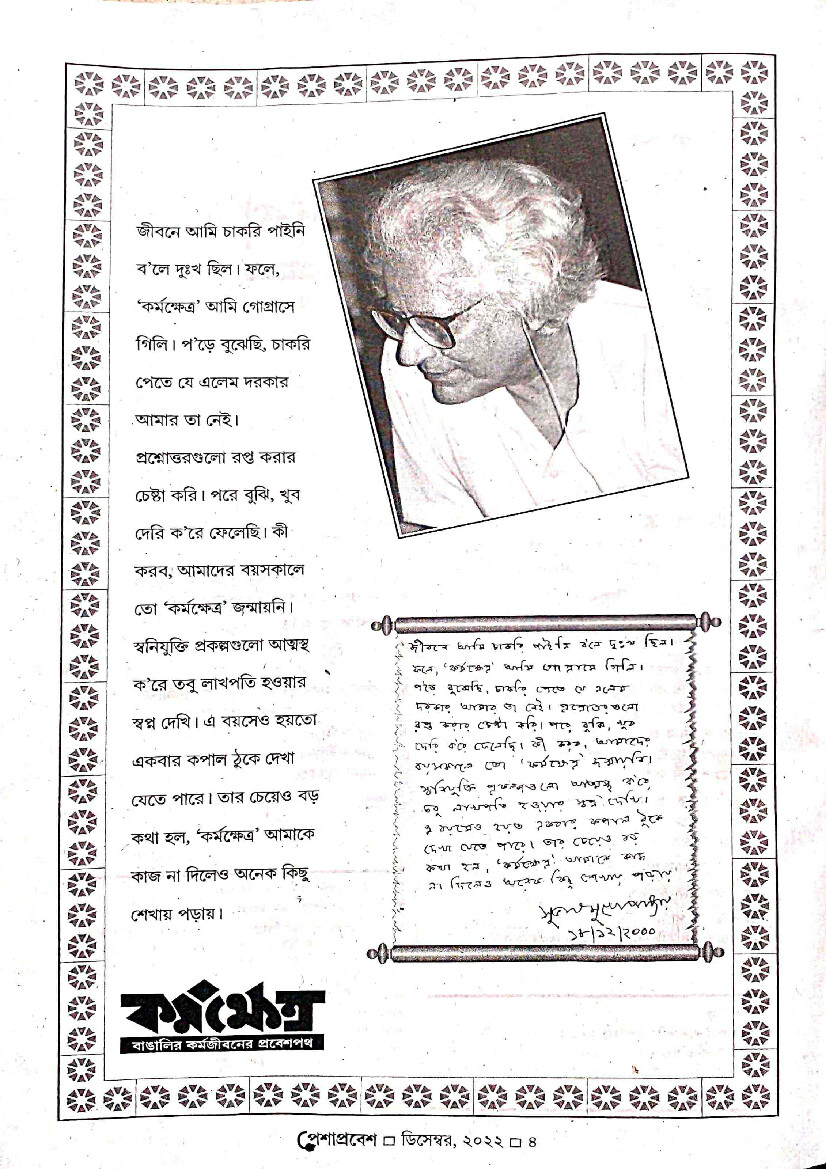 জীবনে আমি চাকরি পাইনি
ব'লে দুঃখ ছিল। ফলে,
'কর্মক্ষেত্র' আমি গোগ্রাসে
গিলি। প'ড়ে বুঝেছি, চাকরি
পেতে যে এলেম দরকার
আমার তা নেই।
প্রশ্নোত্তরগুলো রপ্ত করার
চেষ্টা করি। পরে বুঝি, খুব
দেরি ক'রে ফেলেছি। কী
করব, আমাদের বয়সকালে
তো 'কর্মক্ষেত্র' জন্মায়নি।
স্বনিযুক্তি প্রকল্পগুলো আত্মস্থ
ক'রে তবু লাখপতি হওয়ার
স্বপ্ন দেখি। এ বয়সেও হয়তো
একবার কপাল ঠুকে দেখা
যেতে পারে। তার চেয়েও বড়
কথা হল, 'কর্মক্ষেত্র' আমাকে
কাজ না দিলেও অনেক কিছু
শেখায় পড়ায়।
জীবনে আমি চাকরি পাইনি ব'লে দুঃখ ছিল।
ফলে, 'কর্মক্ষেত্র' আমি গোগ্রাসে গিলি।
প'ড়ে বুঝেছি, চাকরি পেতে যে এলেম
দরকার আমার তা নেই। প্রশ্নোত্তরগুলো
রপ্ত করার চেষ্টা করি। পরে বুঝি, খুব
দেরি ক'রে ফেলেছি। কী করব, আমাদের
বয়সকালে তো 'কর্মক্ষেত্র' জন্মায়নি।
স্বনিযুক্তি প্রকল্পগুলো আত্মস্থ ক'রে
তবু লাখপতি হওয়ার স্বপ্ন দেখি।
এ বয়সেও হয়ত একবার কপাল ঠুকে
দেখা যেতে পারে। তার চেয়েও বড়
কথা হল, 'কর্মক্ষেত্র' আমাকে কাজ
না দিলেও অনেক কিছু শেখায় পড়ায়।
সুভাষ মুখোপাধ্যায়
১৮/১২/২০০০
কর্মক্ষেত্র
বাঙালির কর্মজীবনের প্রবেশপথ
পেশাপ্রবেশ □ ডিসেম্বর, ২০২২ □ ৪